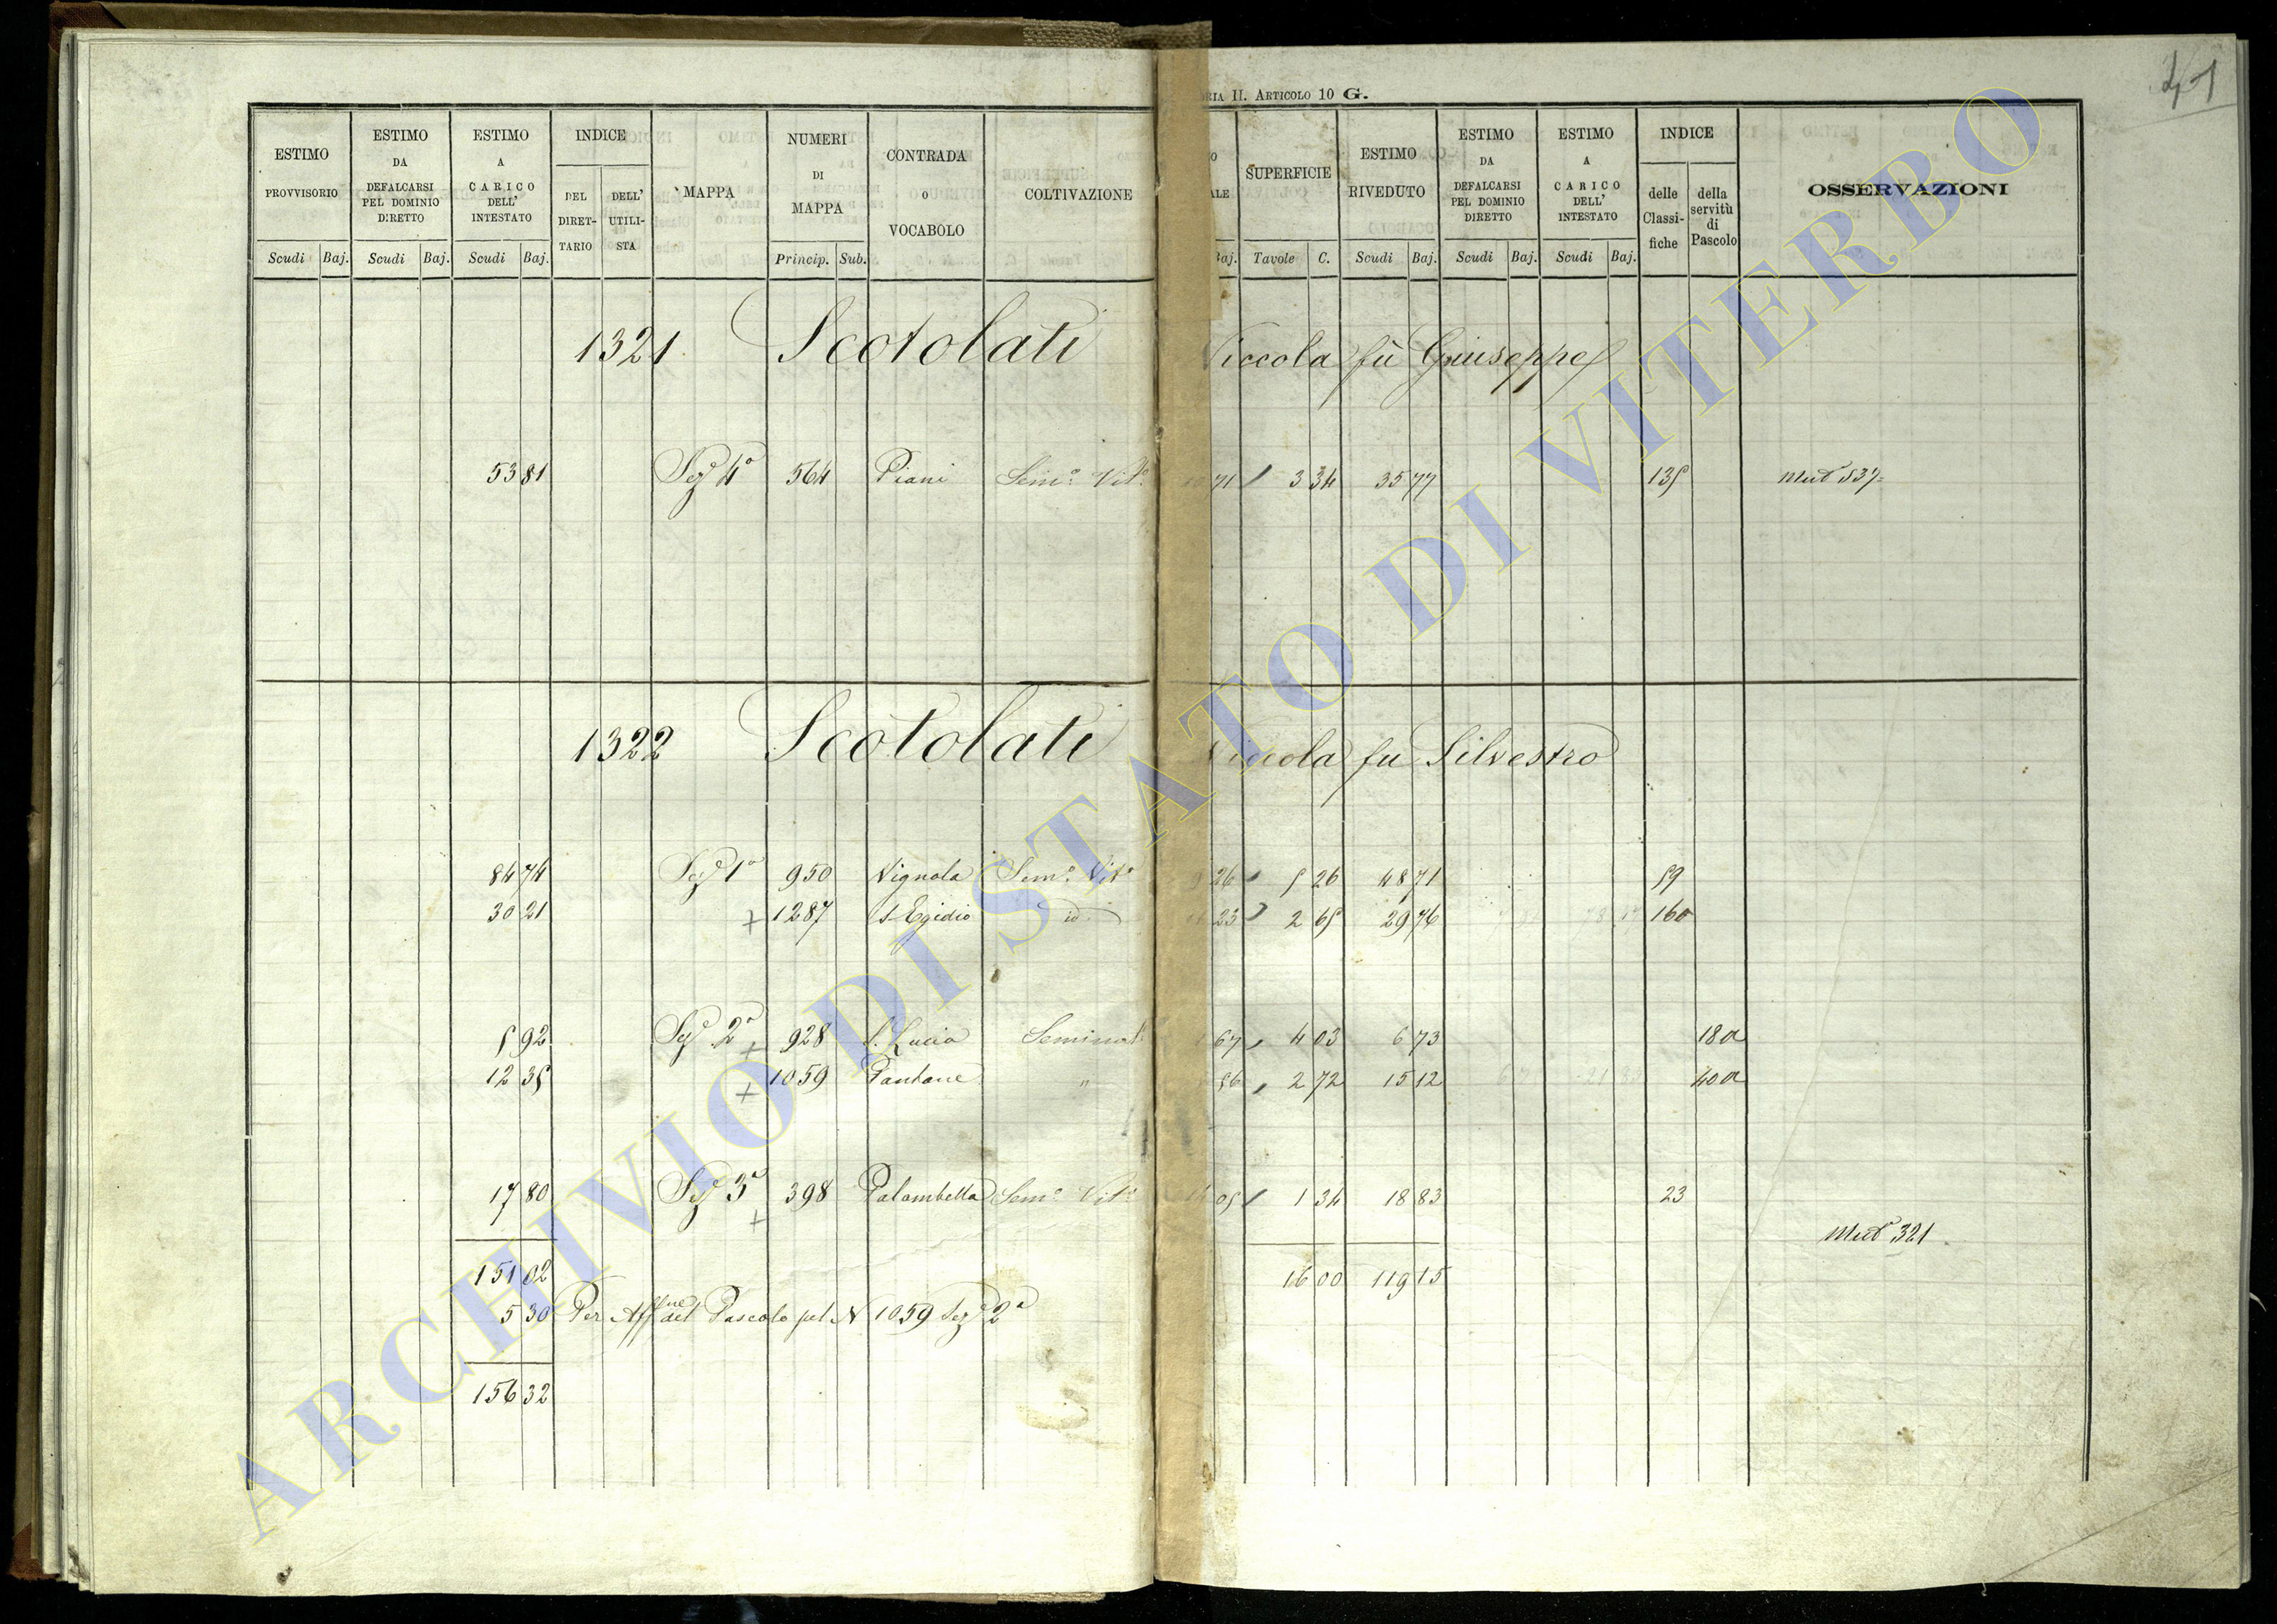 41
RIA II. ARTICOLO 10 G.
ESTIMO PROVVISORIO Scudi Baj.
ESTIMO DA DEFALCARSI PEL DOMINIO DIRETTO Scudi Baj.
ESTIMO A CARICO DELL' INTESTATO Scudi Baj.
INDICE DEL DIRETTARIO DELL' UTILISTA
MAPPA
NUMERI DI MAPPA Princip. Sub.
CONTRADA O VOCABOLO
COLTIVAZIONE
ALE Baj.
SUPERFICIE Tavole C.
ESTIMO RIVEDUTO Scudi Baj.
ESTIMO DA DEFALCARSI PEL DOMINIO DIRETTO Scudi Baj.
ESTIMO A CARICO DELL' INTESTATO Scudi Baj.
INDICE delle Classifiche della servitù di Pascolo
OSSERVAZIONI
1321 Scotolati Niccola fù Giuseppe
53 81 Sez.e 4a 564 Piani Sem.o Vit.o 71 3 34 35 77 135 Mut.a 537
1322 Scotolati Niccola fu Silvestro
84 74 Sez.e 1a 950 Vignola Sem.o Vit.o 26 5 26 48 71 59
30 21 + 1287 S. Egidio id 23 2 65 29 76 160
5 92 Sez.e 2a + 928 S. Lucia Seminat. 67 4 03 6 73 18a
12 35 + 1059 Pantane " 56 2 72 15 12 40a
17 80 Sez.e 3a + 398 Palambella Sem.o Vit.o 05 1 34 18 83 23
Mut.a 321
151 02 16 00 119 15
5 30 Per Aff.ne del Pascolo pel N 1059 Sez.e 2a
156 32
ARCHIVIO DI STATO DI VITERBO